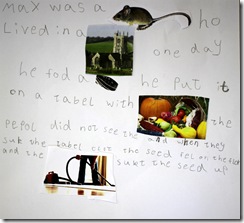 Max was a ho
Lived in a one day
he fod a he put it
on a tabel with the
PePol did not see the and when they
suk the tabel cloth the seed fel on the flor
and the sukt the seed up